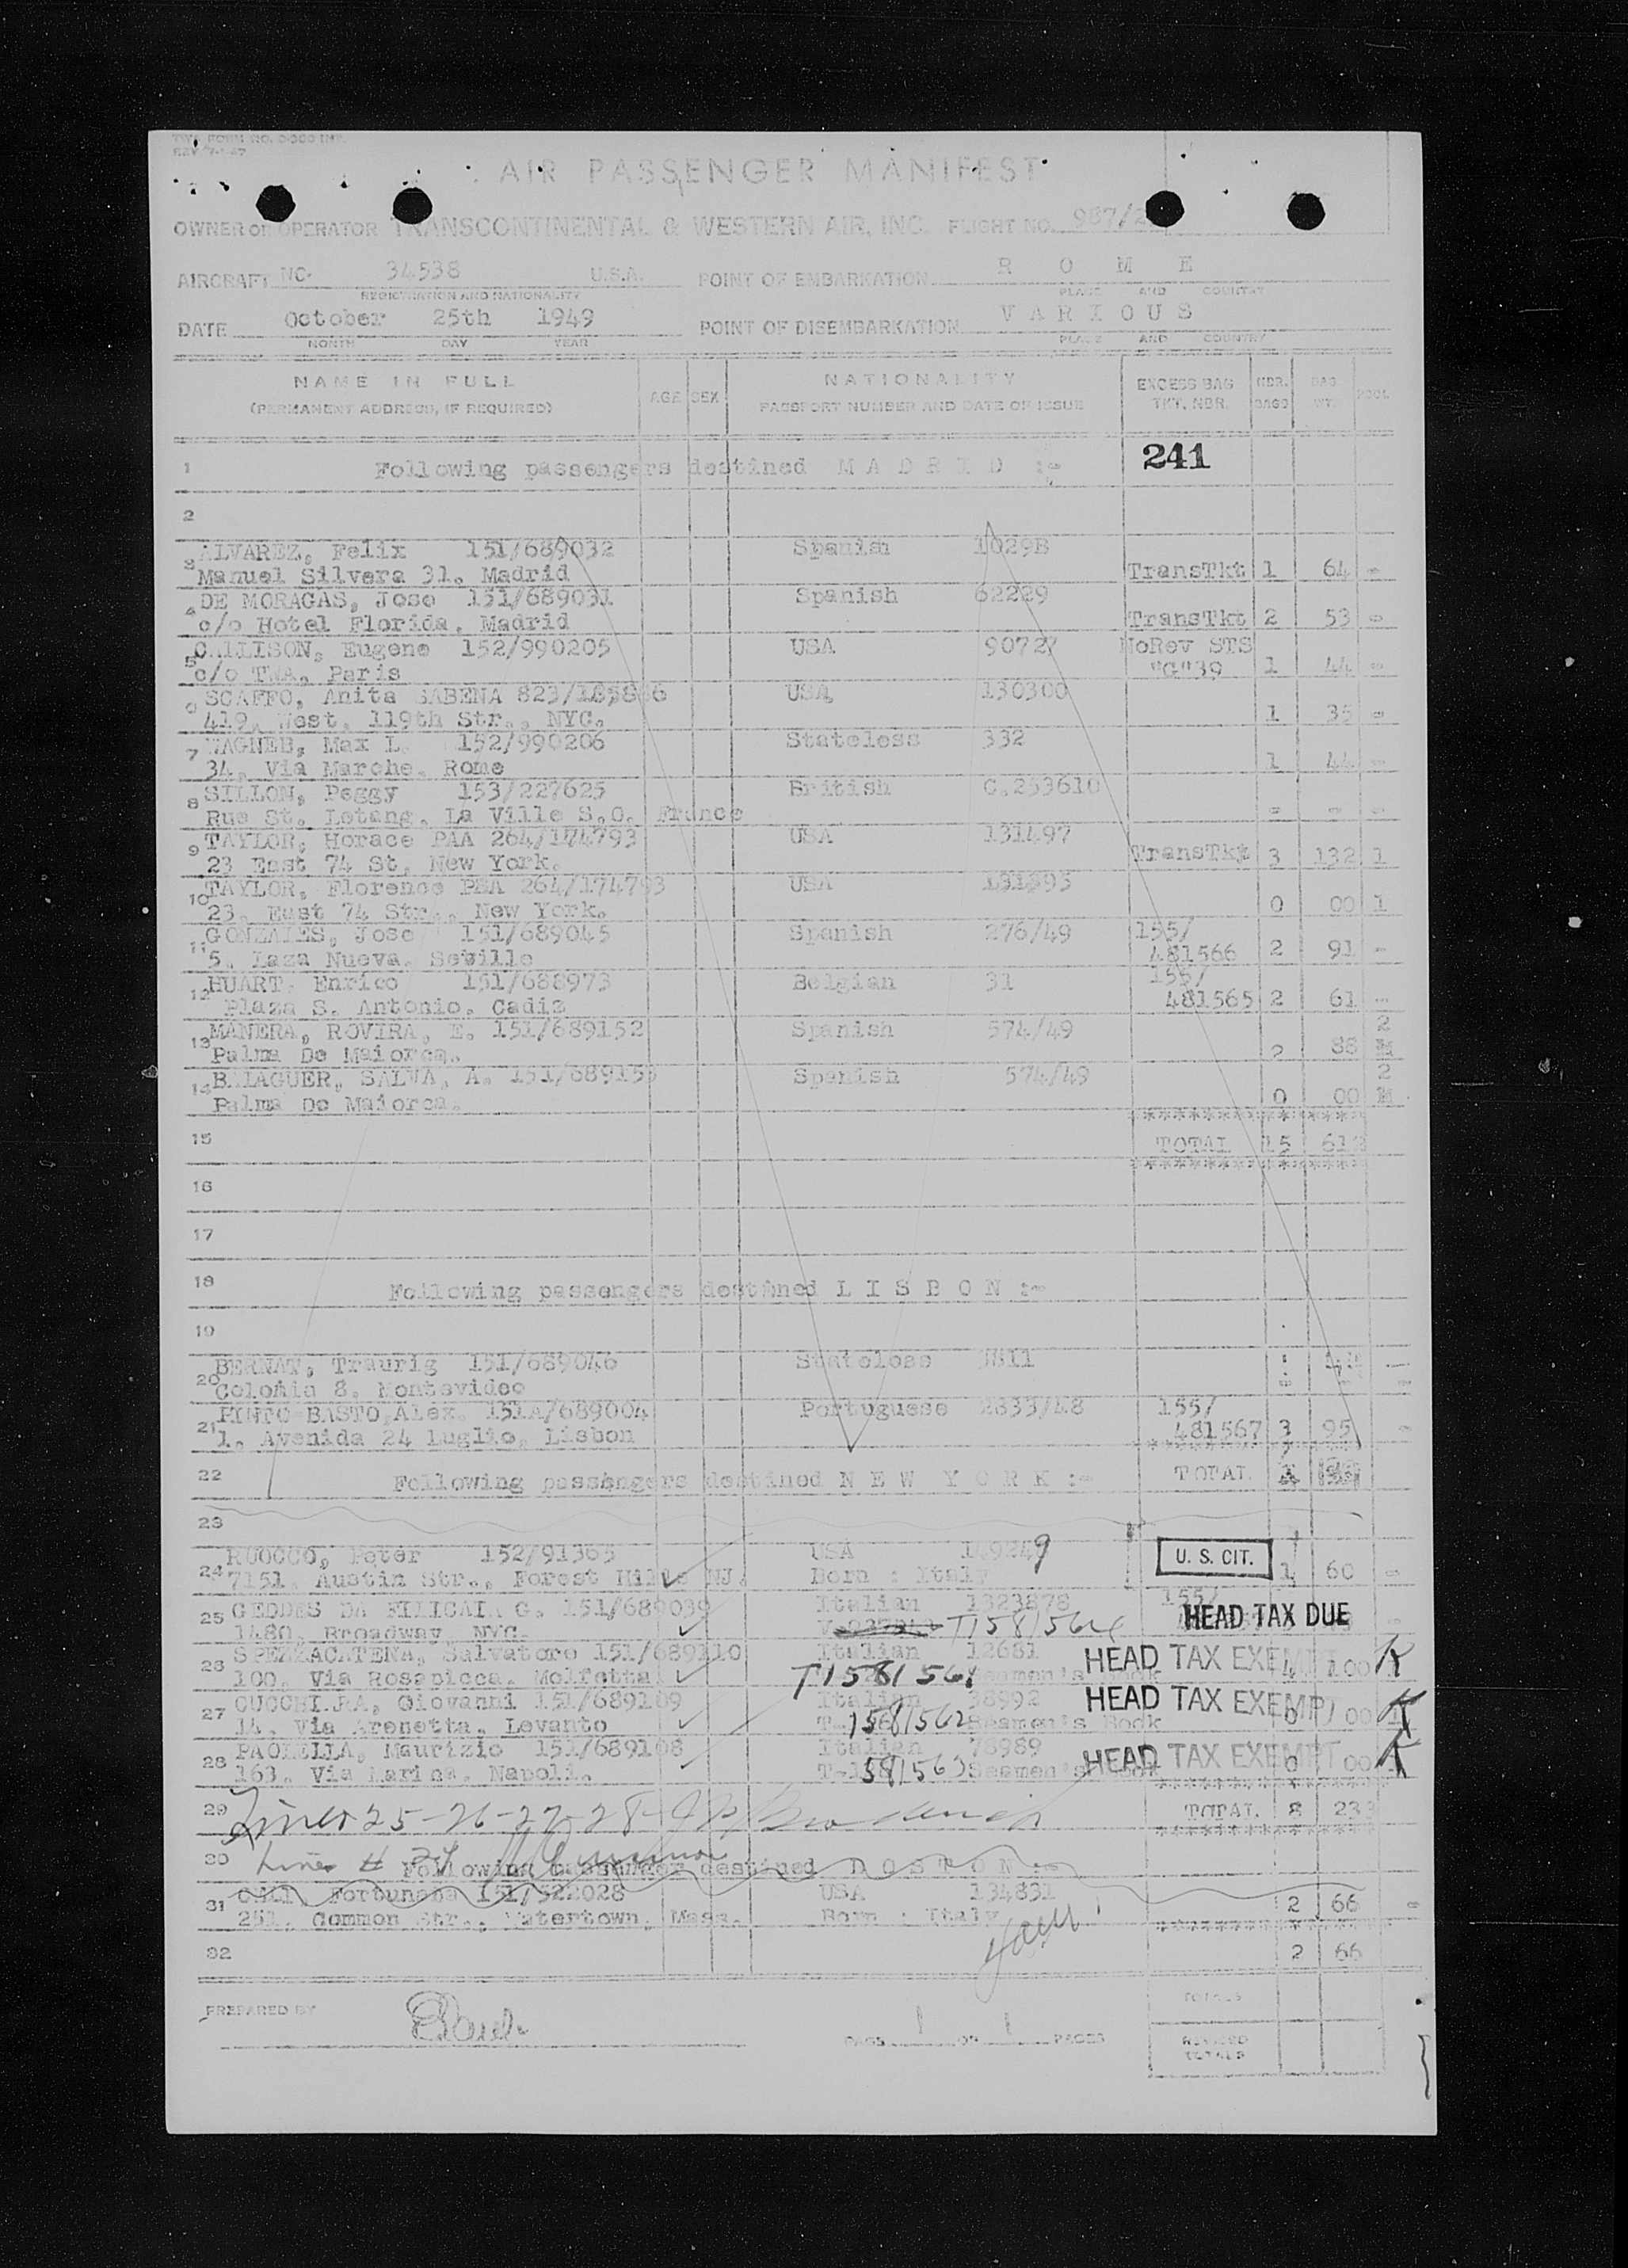 TWA FORM NO.
REV 7-1-47
AIR PASSENGER MANIFEST
OWNER OR OPERATOR TRANSCONTINENTAL & WESTERN AIR, INC. FLIGHT NO. 967/2
AIRCRAFT NC. 34538 U.S.A. POINT OF EMBARKATION R O M E
REGISTRATION AND NATIONALITY PLACE AND COUNTRY
DATE October 25th 1949 POINT OF DISEMBARKATION V A R I O U S
MONTH DAY YEAR PLACE AND COUNTRY
NAME IN FULL AGE SEX NATIONALITY EXCESS BAG NBR. BAG POOL
(PERMANENT ADDRESS, IF REQUIRED) PASSPORT NUMBER AND DATE OF ISSUE TKT. NBR. BAGS WT.
1 Following passengers destined M A D R I D :- 241
2
3 ALVAREZ, Felix 151/689032 Spanish 1029B
Manuel Silvera 31. Madrid TransTkt 1 64 -
4 DE MORAGAS, Jose 151/689031 Spanish 62229
c/o Hotel Florida, Madrid TransTkt 2 53 -
5 CALLISON, Eugene 152/990205 USA 90727 NoRev STS
c/o TWA, Paris "G"39 1 44 -
6 SCAFFO, Anita SABENA USA 130300
419, West, 119th Str., NYC. 1 35 -
7 WAGNER, Max L. 152/990206 Stateless 332
34, Via Marche, Rome 1 44 -
8 SILLON, Peggy 153/227625 British C.253610
Rue St. Letang, La Ville S.O. France - - -
9 TAYLOR, Horace PAA 264/174793 USA 131497
23 East 74 St, New York. TransTkt 3 132 1
10 TAYLOR, Florence PAA 264/174793 USA
23, East 74 Str., New York. 0 00 1
11 GONZALES, Jose 151/689045 Spanish 276/49 155/
5, Laza Nueva. Seville 481566 2 91 -
12 HUART, Enrico 151/688973 Belgian 31 155/
Plaza S. Antonio, Cadiz 481565 2 61 -
13 MANERA, ROVIRA, E. 151/689152 Spanish 574/49 2
Palma De Maiorca. 2 88 M
14 BALAGUER, SALVA, A. Spanish 574/49 2
Palma De Maiorca. 0 00 M
15 TOTAL 15 612
16
17
18 Following passengers destined L I S B O N :-
19
20 BERNAT, Traurig 151/689046 Stateless
Colonia 8. Montevideo
21 PINTO BASTO, Alex. 151A/689004 Portuguese 2833/48 155/
1, Avenida 24 Luglio, Lisbon 481567 3 95 -
22 Following passengers destined N E W Y O R K :- TOTAL
23
24 RUOCCO, Peter 152/91365 USA U. S. CIT.
7151, Austin Str., Forest Hills NJ. Born : Italy 1 60 -
25 GEDDES DA FILICAIA G. 151/689039 Italian 1323878 155/
1480, Broadway NYC. T1581564 HEAD TAX DUE
26 SPEZZACATENA, Salvatore 151/689110 Italian 12681 HEAD TAX EXEMPT
100, Via Rosapicca, Molfetta T1581561 Seamen's 4 100 K
27 CUCCHIARA, Giovanni 151/689109 Italian 38992 HEAD TAX EXEMPT
14, Via Arenetta, Levanto T-1581562 Seamen's Book 0 00 K
28 PAOLELLA, Maurizio 151/689108 Italian 78989 HEAD TAX EXEMPT
163, Via Marina, Napoli. T-1581563 Seamen's Book 0 00 K
29 Lines 25-26-27-28- TOTAL 8 233
30 Line # 24 Following passenger destined B O S T O N :-
31 Fortunata 151/522028 USA 134831
251, Common Str., Watertown, Mass. Born : Italy 2 66 -
32 2 66
PREPARED BY PAGE 1 OF 1 PAGES
TOTALS
REVISED
TOTALS